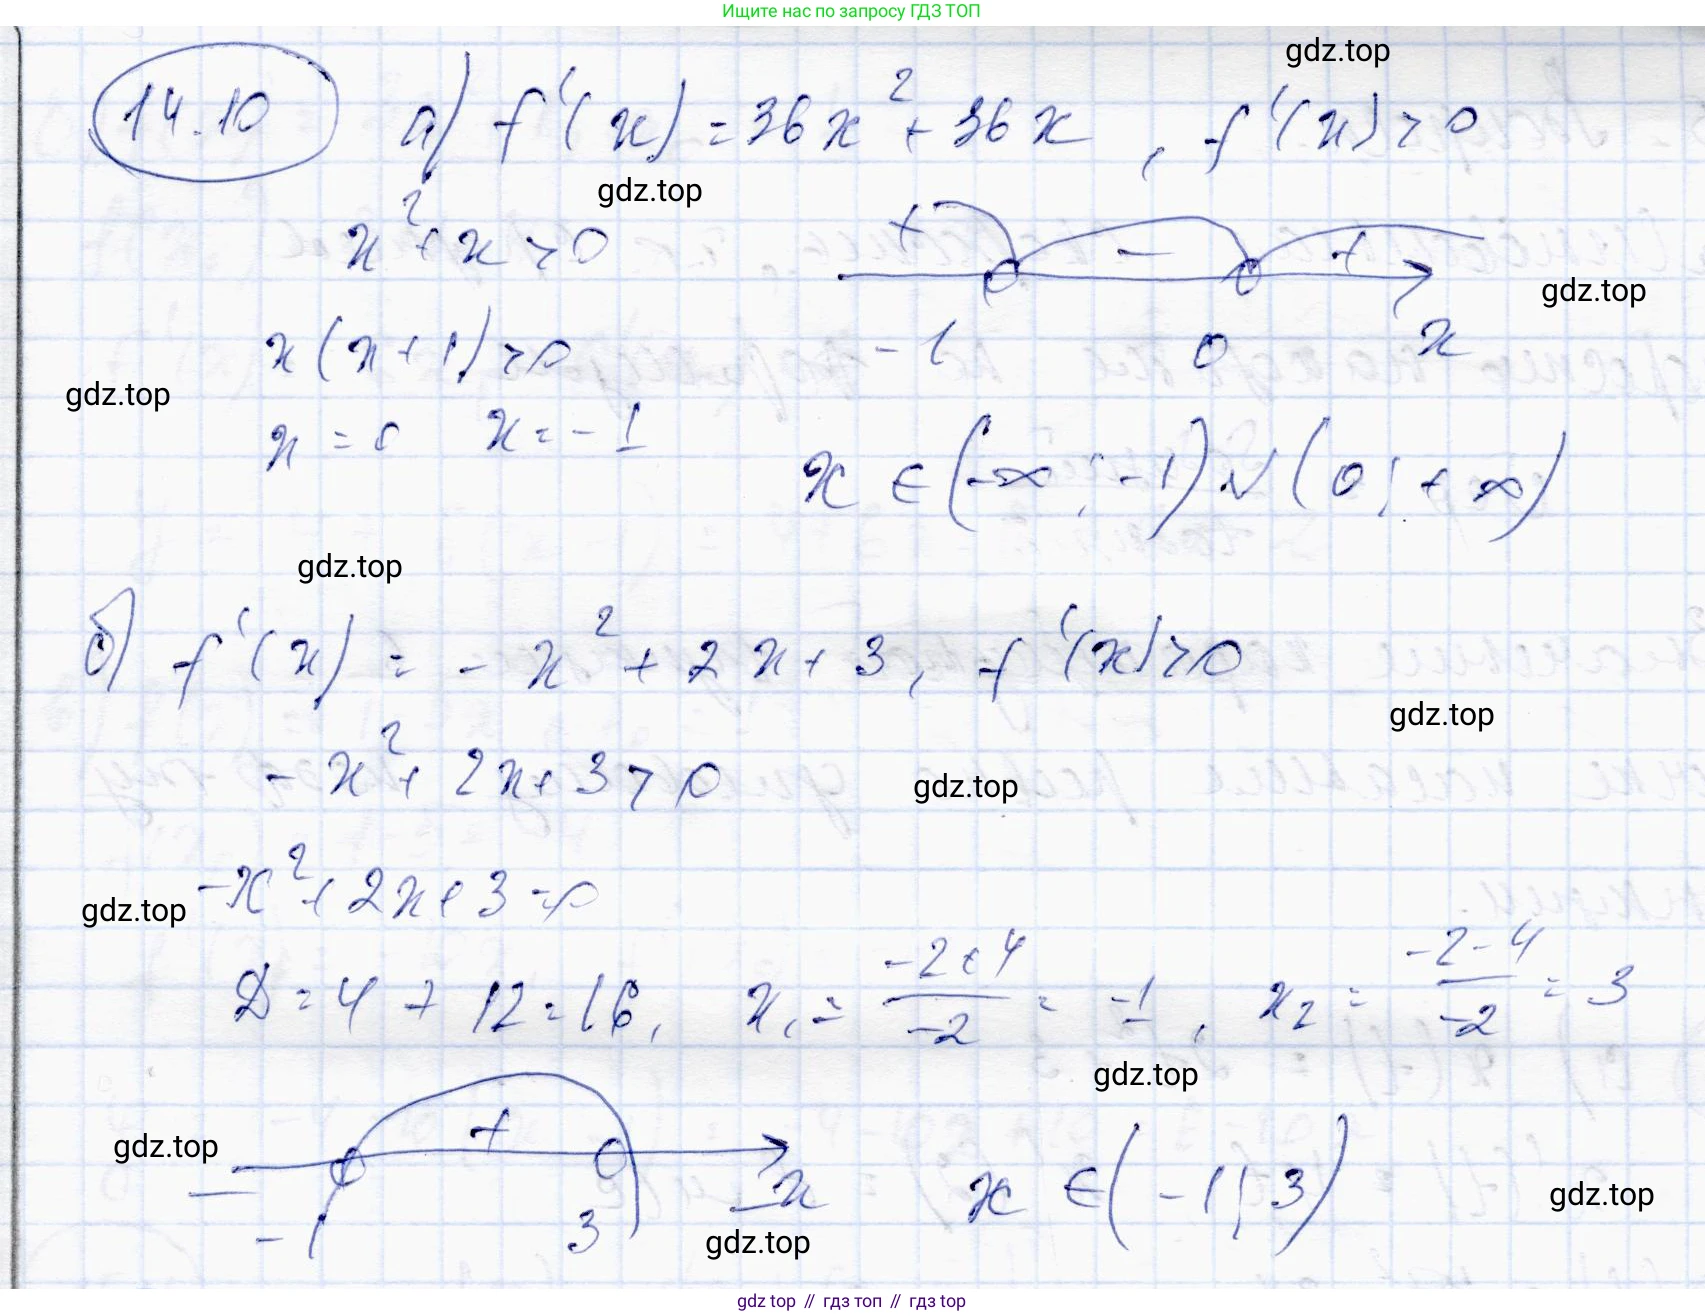 Ищите нас по запросу ГДЗ ТОП
gdz.top
14.10 а) f'(x) = 36x² + 36x, f'(x) > 0
gdz.top
x² + x > 0
+ − +
gdz.top
x(x+1) > 0
-1 0 x
gdz.top
x = 0 x = -1
x ∈ (-∞; -1) ∪ (0; +∞)
gdz.top
б) f'(x) = -x² + 2x + 3, f'(x) > 0
gdz.top
-x² + 2x + 3 > 0
gdz.top
-x² + 2x + 3 = 0
gdz.top
D = 4 + 12 = 16, x₁ = (-2+4)/(-2) = -1, x₂ = (-2-4)/(-2) = 3
gdz.top
gdz.top
− + −
-1 3 x
x ∈ (-1; 3)
gdz.top
gdz.top
gdz top // гдз топ // гдз top